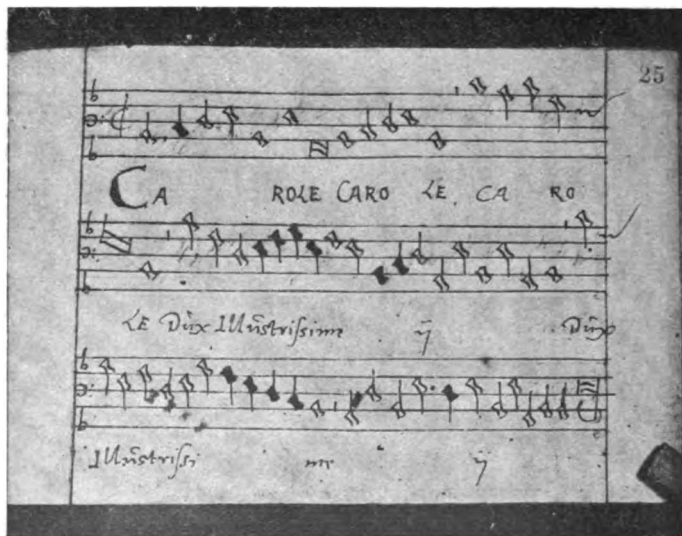 25
CA ROLE CARO LE CA RO
LE Dux Illustrissime ij Dux
Illustrissi me ij